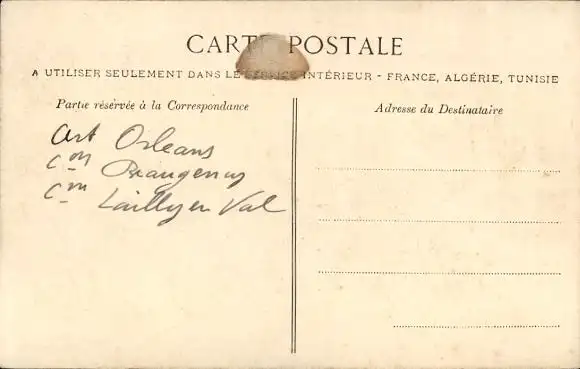 CARTE POSTALE
A UTILISER SEULEMENT DANS LE SERVICE INTÉRIEUR - FRANCE, ALGÉRIE, TUNISIE
Partie réservée à la Correspondance
Adresse du Destinataire
Art Orleans
Con Beaugency
Cne Lailly en Val